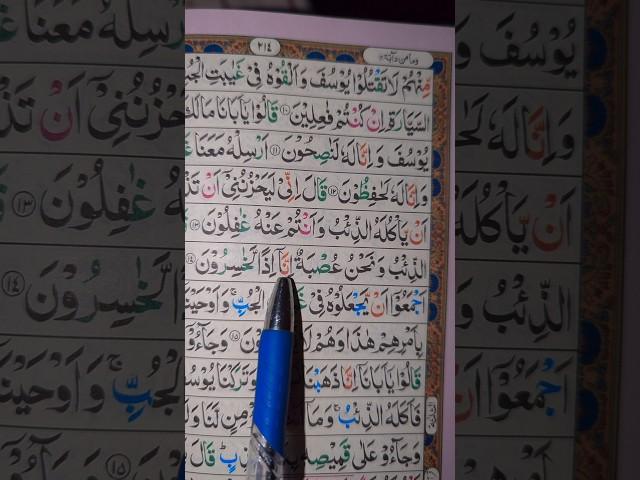 ومامن دآبة ١٢
٢١٤
مِّنْهُمْ لَا تَقْتُلُوْا يُوْسُفَ وَاَلْقُوْهُ فِيْ غَيٰبَتِ
السَّيَّارَةِ اِنْ كُنْتُمْ فٰعِلِيْنَ ١٠ قَالُوْا يٰۤاَبَانَا مَالَكَ
يُوْسُفَ وَاِنَّا لَهٗ لَنٰصِحُوْنَ ١١ اَرْسِلْهُ مَعَنَا
وَاِنَّا لَهٗ لَحٰفِظُوْنَ ١٢ قَالَ اِنِّيْ لَيَحْزُنُنِيْۤ اَنْ
اَنْ يَّاْكُلَهُ الذِّئْبُ وَاَنْتُمْ عَنْهُ غٰفِلُوْنَ ١٣
الذِّئْبُ وَنَحْنُ عُصْبَةٌ اِنَّاۤ اِذًا لَّخٰسِرُوْنَ ١٤
اَجْمَعُوْۤا اَنْ يَّجْعَلُوْهُ فِيْ الْجُبِّ ۚ وَاَوْحَيْنَاۤ
بِاَمْرِهِمْ هٰذَا وَهُمْ لَا ١٥ وَجَآءُوْۤ
قَالُوْا يٰۤاَبَانَاۤ اِنَّا ذَهَبْنَا وَتَرَكْنَا
فَاَكَلَهُ الذِّئْبُ ۚ وَمَاۤ لَنَا
وَجَآءُوْ عَلٰى قَمِيْصِهٖ قَالَ